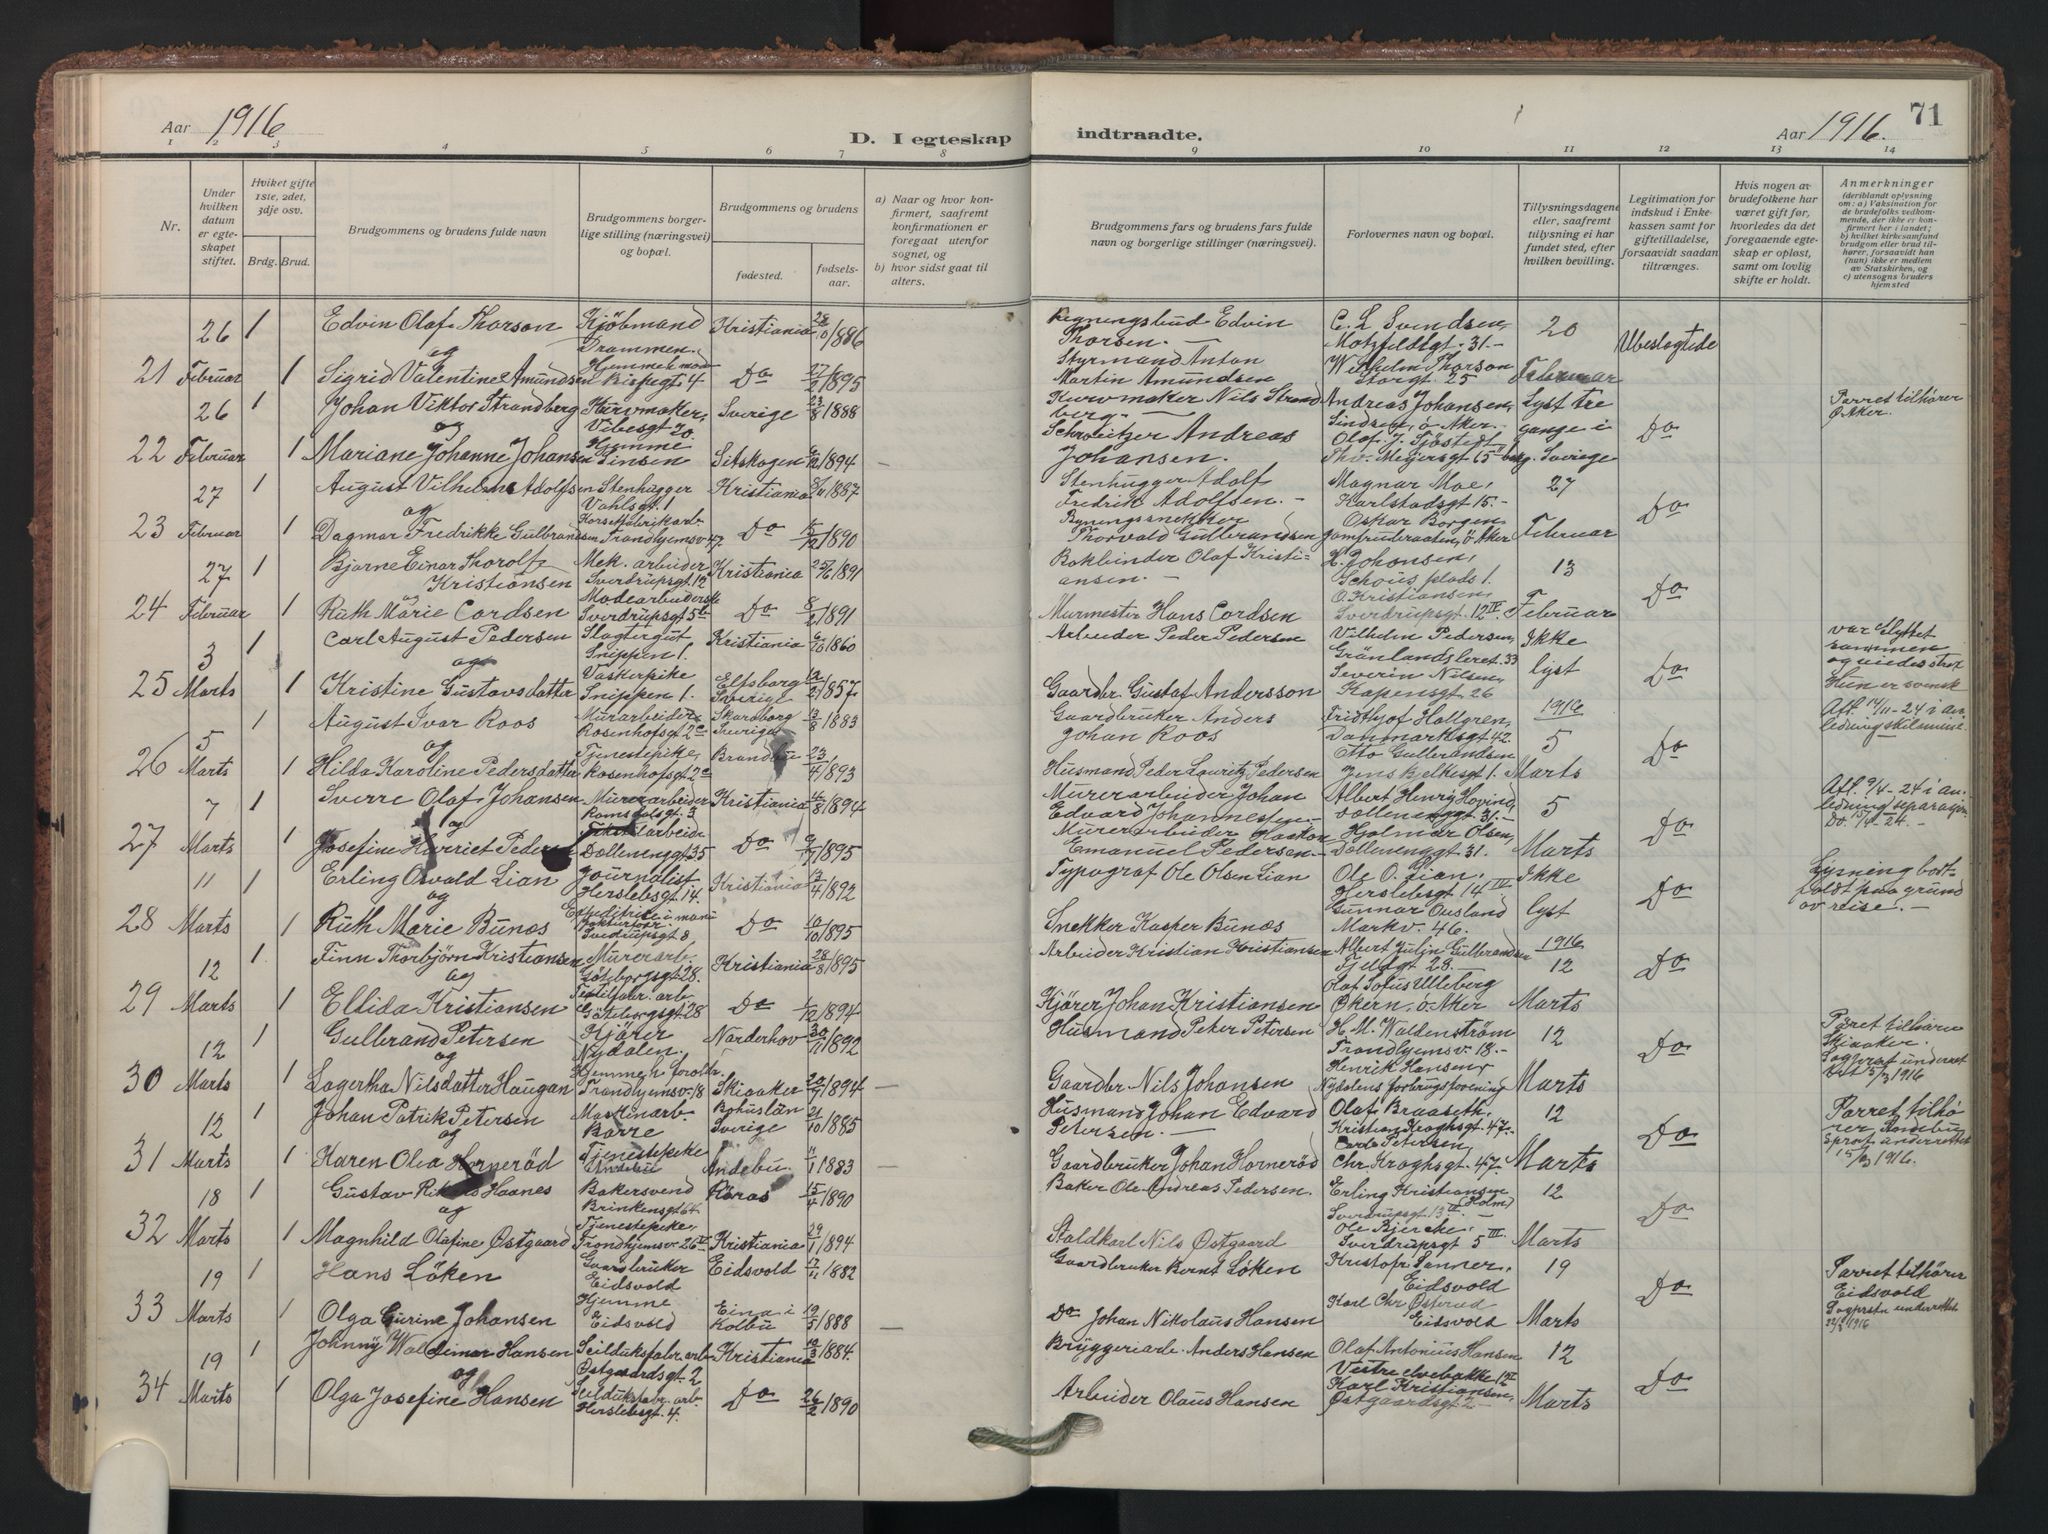 Aar 1916
D. I egteskap
1 2 3 4 5 6 7 8
Nr.
Under hvilken datum er egteskapet stiftet.
Hviket gifte 1ste, 2det, 3dje osv.
Brdg. Brud.
Brudgommens og brudens fulde navn
Brudgommens borgerlige stilling (næringsvei) og bopæl.
Brudgommens og brudens
fødested.
fødselsaar.
a) Naar og hvor konfirmert, saafremt konfirmationen er foregaat utenfor sognet, og
b) hvor sidst gaat til alters.
21 26 Februar 1 Edvin Olaf Thorson Kjöbmand Drammen. Kristiania 28/10 1886
og
1 Sigrid Valentine Amundsen Hjemme h. mor Bispegt. 4 Do 27/2 1895
22 26 Februar 1 Johan Viktor Strandberg Kurvmaker, Vibesgt 20 Sverige 23/8 1888
og
1 Mariane Johanne Johansen Hjemme Sinsen Sitskogen 1894 —
23 27 Februar 1 August Vilhelm Adolfsen Stenhugger Vahlsgt. 1 Kristiania 1887
og
1 Dagmar Fredrikke Gulbrandsen Korsetfabrikarb. Trondhjemsv. 47. Do 15/12 1890
24 27 Februar 1 Bjarne Einar Thorolf Kristiansen Mek. arbeider Sverdrupsgt 12 Kristiania 25/6 1891
og
1 Ruth Marie Cordsen Modearbeiderske Sverdrupsgt 5b Do 8/2 1891
25 3 Marts Carl August Pedersen Slagtergut Snippen 1. Kristiania 6/10 1860
og
1 Kristine Gustavsdatter Vaskerpike Snippen 1. Elfsborg Sverige 1857
26 5 Marts 1 August Ivar Roos Murarbeider Rosenhofsgt 2c Skaraborg Sverige 13/8 1883
og
1 Hilda Karoline Pedersdatter Tjenestepike, Rosenhofsgt 2c Brandbu 23/4 1893
27 7 Marts 1 Sverre Olaf Johansen Murerarbeider Romsdalsgt. 3 Kristiania 1894
og
1 Josefine Harriet Pedersen Dælenenggt 35 Do 1895
28 11 Marts 1 Erling Osvald Lian Journalist Herslebsgt 14. Kristiania 1892
og
1 Ruth Marie Bunæs Expeditrice i manufakturforr. Sverdrupsgt 8 Do 10/10 1895
29 12 Marts 1 Finn Thorbjörn Kristiansen Murerarb. Göteborgsgt 28. Kristiania 28/8 1895
og
1 Ellida Kristiansen Textilfabr. arb. Göteborgsgt 28 Do 1/12 1894
30 12 Marts 1 Gulbrand Petersen Kjörer Nydalen. Norderhov 30/11 1892
og
1 Lagertha Nilsdatter Haugan Hjemme h. foreldr. Trondhjemsv. 18 Skiaaker 1894 —
31 12 Marts 1 Johan Patrik Petersen Maskinarb. Borre Bohuslän Sverige 21/10 1885
og
1 Karen Olea Hornerød Tjenestepike Andebu Andebu. 11/1 1883 —
32 18 Marts 1 Gustav Haanes Bakersvend Brinkensgt 64 Röros 15/4 1890
og
1 Magnhild Olafine Østgaard Tjenestepike, Trondhjemsv. 26 Kristiania 29/1 1894
33 19 Marts 1 Hans Löken Gaardbruker Eidsvold Eidsvold 17/11 1882
1 Olga Gurine Johansen Hjemme Eidsvold Eina i Kolbu 19/5 1888 —
34 19 Marts 1 Johnny Waldemar Hansen Seilduksfabr. arb. Østgaardsgt. 2 Kristiania 10/3 1884.
og
1 Olga Josefine Hansen Seilduksfabr. arb. Herslebsgt. 4. Do 26/2 1890
indtraadte.
Aar 1916.
71
9 10 11 12 13 14
Brudgommens fars og brudens fars fulde navn og borgerlige stillinger (næringsvei).
Forlovernes navn og bopæl.
Tillysningsdagene eller, saafremt tillysning ei har fundet sted, efter hvilken bevilling.
Legitimation for indskud i Enkekassen samt for giftetilladelse, forsaavidt saadan tiltrænges.
Hvis nogen av brudefolkene har været gift før, hvorledes da det foregaaende egteskap er opløst, samt om lovlig skifte er holdt.
Anmerkninger
(deriblandt oplysning om: a) Vaksination for de brudefolks vedkommende, der ikke er konfirmert her i landet;
b) hvilket kirkesamfund brudgom eller brud tilhører, forsaavidt han (hun) ikke er medlem av Statskirken, og
c) utensogns bruders hjemsted
Regningsbud Edvin Thorsen. — C. L. Svendsen, Motzfeldtsgt. 31.— 20 Februar Ubeslegtede
Styrmand Anton Martin Amundsen Wilhelm Thorson Storgt. 25
Kurvmaker Nils Strandberg. — Andreas Johansen, Sindsen, ö. Aker. Lyst tre gange i Sverige Do Parret tilhører Ø. Aker.
Schweitzer Andreas Johansen. Olaf. J. Sjöstedt, Thv. Meyersgt 15
Stenhugger Adolf Fredrik Adolfsen. — Magnar Moe, Karlstadsgt 15.— 27 Februar Do
Bygningssnekker Thorvald Gulbrandsen Oskar Borgen, Jomfrubraaten, ö. Aker
Bokbinder Olaf Kristiansen. — Johansen, Schous plads 1. 13 Februar Do
Murmester Hans Cordsen O. Kristiansen, Sverdrupsgt. 12 IV.
Arbeider Peder Pedersen Vilhelm Pedersen, Grönlandsleret. 33 Ikke lyst Do var flyttet sammen og viedes strax Hun er svensk
Gaardbr. Gustaf Andersson Severin Nilsen, Kapensgt 26
Gaardbruker Anders Johan Roos Fridthjof Hallgren, Danmarksgt. 42. 1916 5 Marts Do Att. 14/11-24 i anledning skilsmisse.
Husmand Peder Lauritz Pedersen Otto Gulbrandsen Jens Bjelkesgt 1.
Murerarbeider Johan Edvard Johannesen.— Albert Henry Hovind, Dællenenggt. 31.— 5 Marts Do Att. 9/4-24 i anledning separasjon. Do. 15/4-24.—
Murerarbeider Haakon Emanuel Pedersen.— Hjalmar Olsen, Dællenenggt 31.
Typograf Ole Olsen Lian Ole O. Lian, Herslebsgt 14 IV Ikke lyst Do Lysning bortfaldt paa grund av reise. —
Snekker Kasper Bunæs Gunnar Ousland Markv. 46.
Arbeider Kristian Kristiansen Albert Julin Gulbrandsen Fjeldgt 28.— 1916 12 Marts Do
Kjörer Johan Kristiansen Olaf Sofus Ulleberg Økern, ö. Aker
Husmand Peter Petersen H. M. Waldenström Trondhjemsv. 18.— 12 Marts Do Paret tilhører Skiaaker. Sogpræst underrettet 15/3 1916
Gaardbr Nils Johansen Henrik Hansen, Nydalens forbrugsforening
Husmand Johan Edvard Petersen. — Olaf Braaseth. Kristian Kroghsgt. 47.— 12 Marts Do Parret tilhører Andebu Sprst underrettet 15/3 1916.
Gaardbruker Johan Hornerød Carlo Petersen, Chr. Kroghsgt. 47.
Baker Ole Andreas Pedersen. Erling Kristiansen (Holm) Sverdrupsgt 13 12 Marts Do
Staldkarl Nils Østgaard Ole Bjercke, Sverdrupsgt 5 III
Gaardbruker Bernt Löken Kristofr. Sanner, Eidsvold 19 Marts Do Parret tilhører Eidsvold Sogprstn underrettet 22/3 1916
Do Johan Nikolaus Hansen Karl Chr Østerud Eidsvold
Bryggeriarb. Anders Hansen Olaf Antonius Hansen Vestre elvebakke 12 12 Marts Do
Arbeider Olaus Hansen Karl Kristiansen, Østgaardsgt 2—